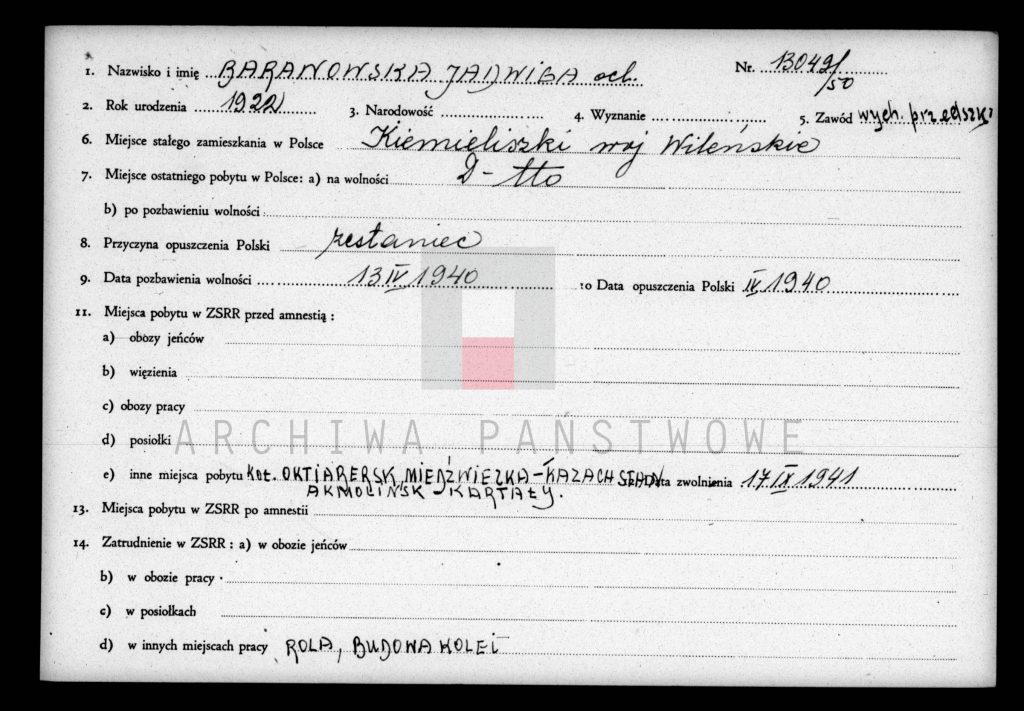 1. Nazwisko i imię BARANOWSKA JADWIGA och. Nr. 13049/50
2. Rok urodzenia 1922 3. Narodowość 4. Wyznanie 5. Zawód wych. przedszk
6. Miejsce stałego zamieszkania w Polsce Kiemieliszki woj Wileńskie
7. Miejsce ostatniego pobytu w Polsce: a) na wolności D-tto
b) po pozbawieniu wolności
8. Przyczyna opuszczenia Polski zesłaniec
9. Data pozbawienia wolności 13 IV 1940 10 Data opuszczenia Polski IV 1940
11. Miejsca pobytu w ZSRR przed amnestią :
a) obozy jeńców
b) więzienia
c) obozy pracy
d) posiołki
ARCHIWA PAŃSTWOWE
e) inne miejsca pobytu KOŁ. MIEDŹWIEZKA-KAZACHSTAN ta zwolnienia 17 IX 1941
AKMOLIŃSK - KARTAŁY.
13. Miejsca pobytu w ZSRR po amnestii
14. Zatrudnienie w ZSRR : a) w obozie jeńców
b) w obozie pracy
c) w posiołkach
d) w innych miejscach pracy ROLA, BUDOWA KOLEI